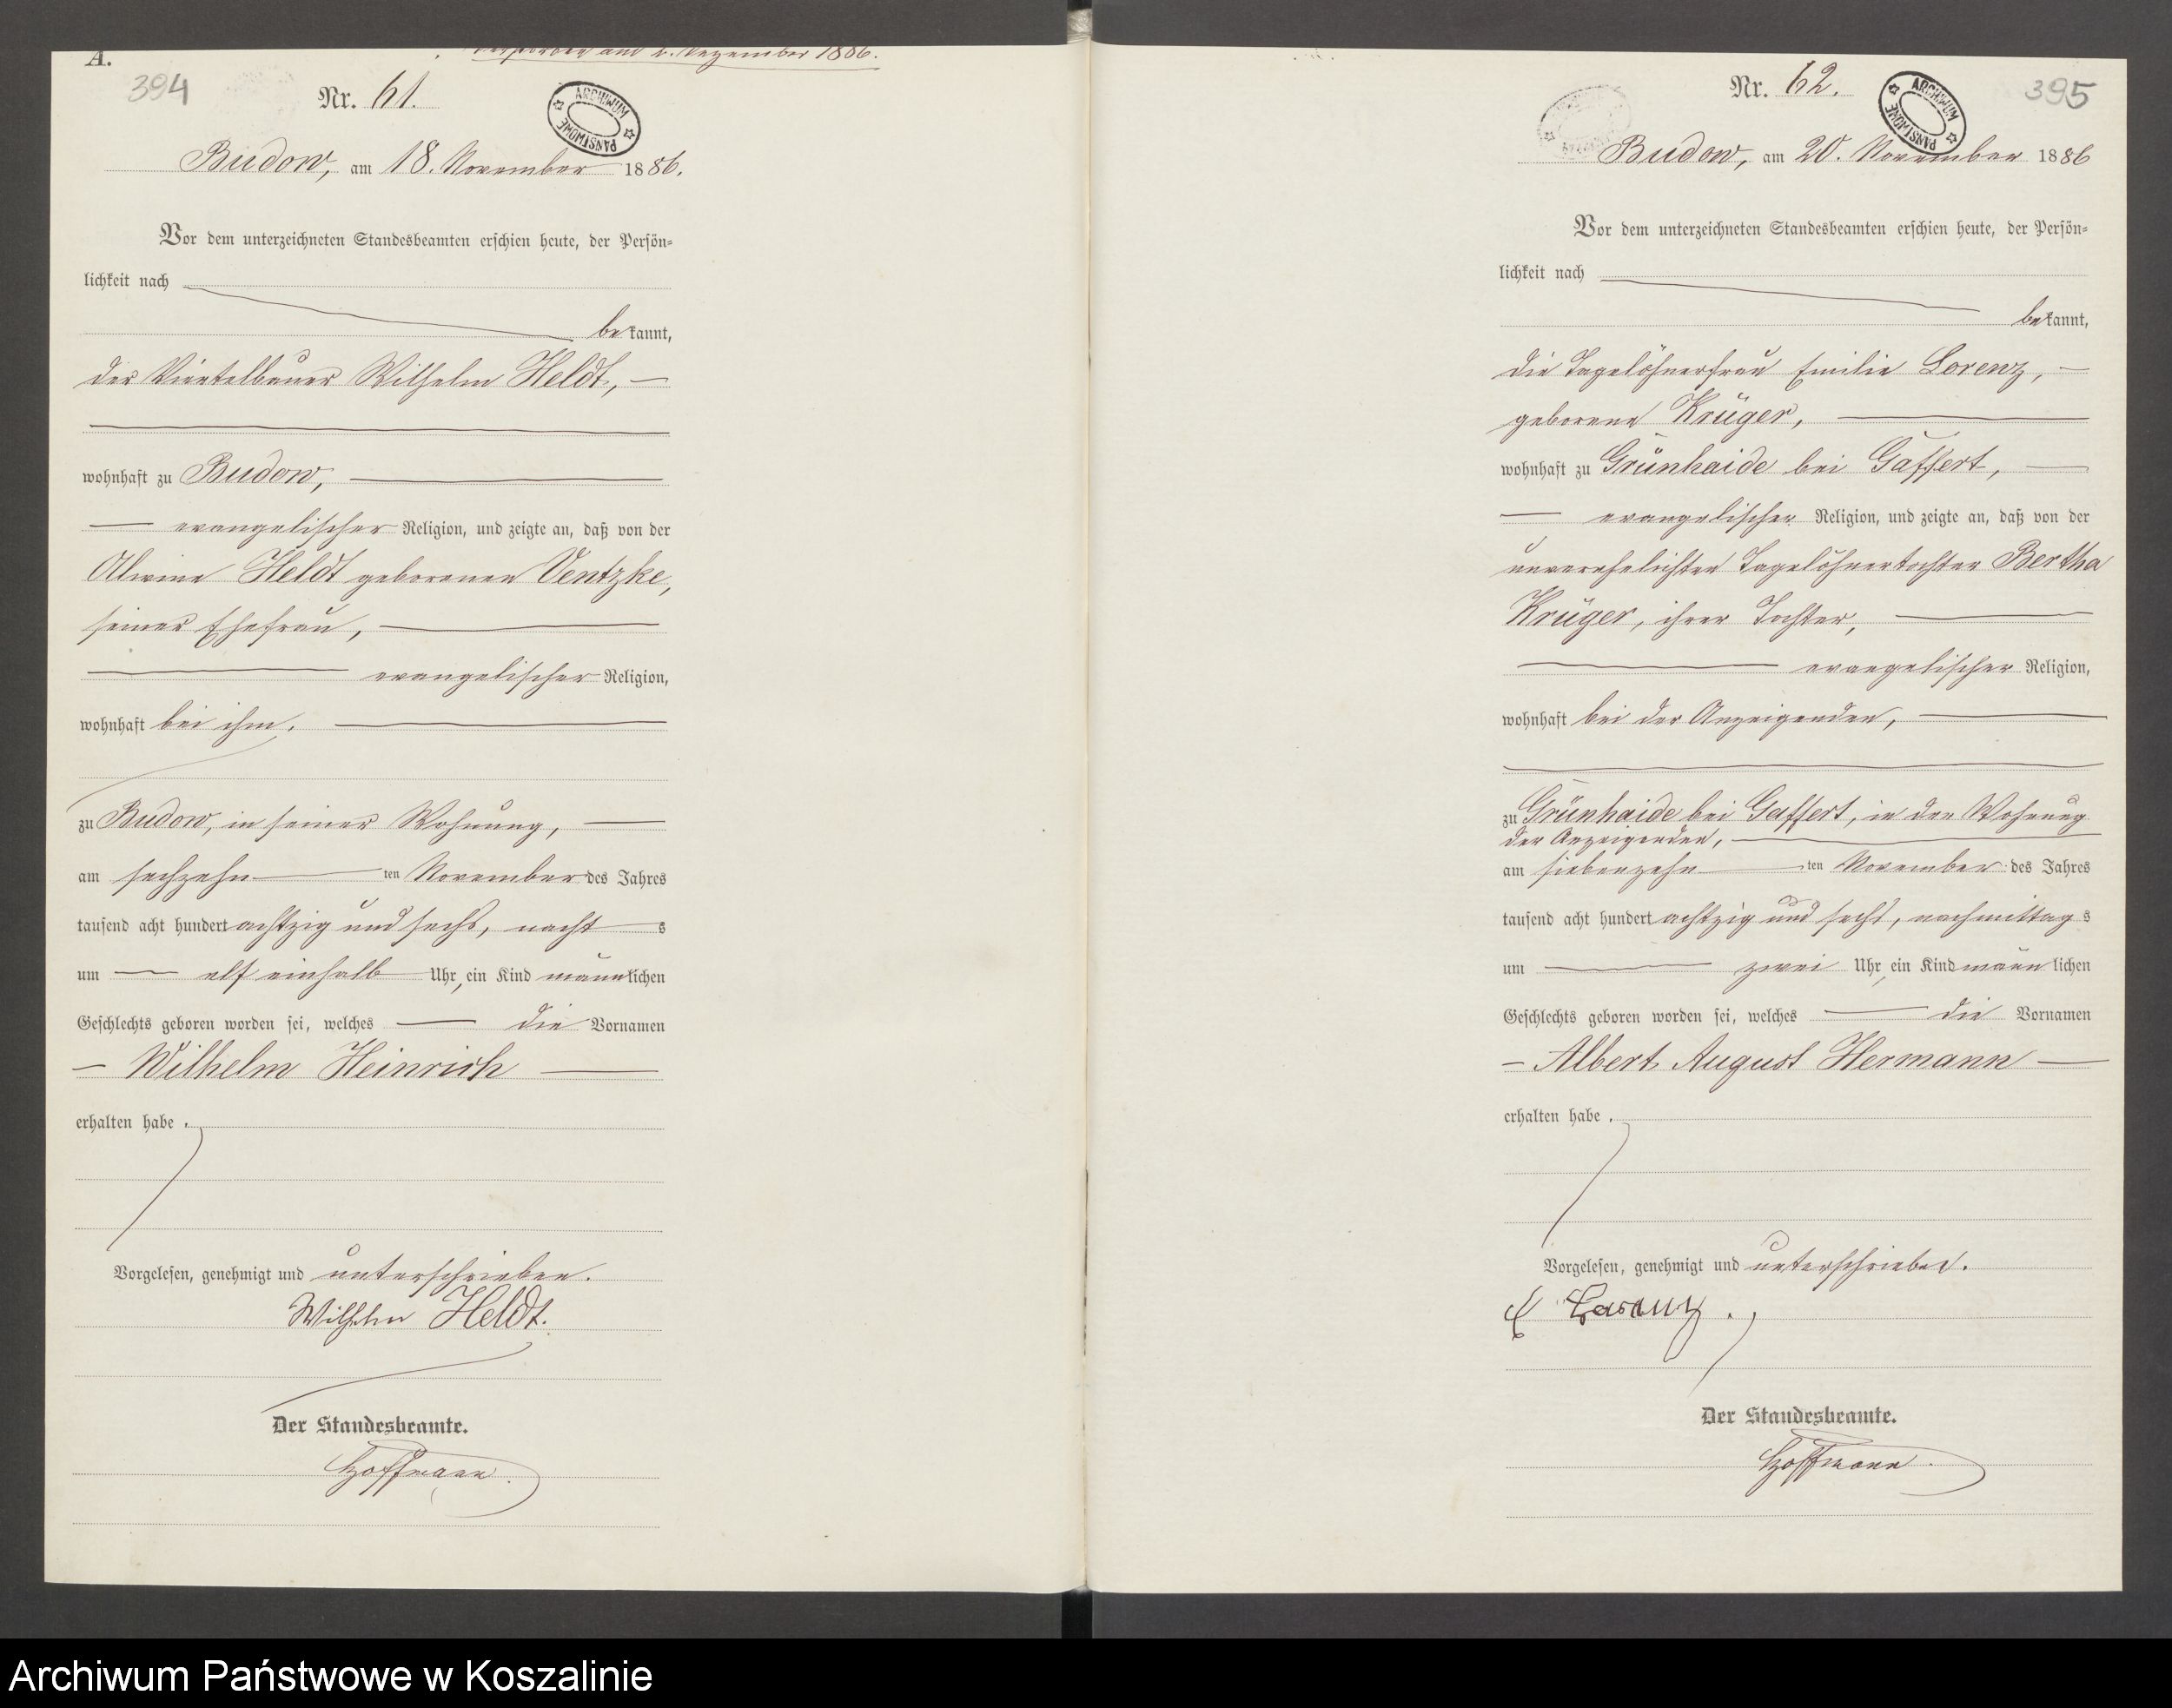 A.
am 2. Dezember 1886.
394
Nr. 61.
ARCHIWUM PAŃSTWOWE
Budow, am 18. November 1886.
Vor dem unterzeichneten Standesbeamten erschien heute, der Persön-
lichkeit nach
bekannt,
der Viertelbauer Wilhelm Heldt,
wohnhaft zu Budow,
evangelischer Religion, und zeigte an, daß von der
Alwine Heldt geborenen Ventzke,
seiner Ehefrau,
evangelischer Religion,
wohnhaft bei ihm,
zu Budow, in seiner Wohnung,
am sechzehn ten November des Jahres
tausend acht hundert achtzig und sechs, nacht s
um elf einhalb Uhr, ein Kind männlichen
Geschlechts geboren worden sei, welches die Vornamen
Wilhelm Heinrich
erhalten habe.
Vorgelesen, genehmigt und unterschrieben.
Wilhelm Heldt.
Der Standesbeamte.
Hoffmann.
Nr. 62.
ARCHIWUM PAŃSTWOWE
395
Budow, am 20. November 1886
Vor dem unterzeichneten Standesbeamten erschien heute, der Persön-
lichkeit nach
bekannt,
die Tagelöhnerfrau Emilie Lorenz,
geborene Krüger,
wohnhaft zu Grünhaide bei Gaffert,
evangelischer Religion, und zeigte an, daß von der
unverehelichten Tagelöhnertochter Bertha
Krüger, ihrer Tochter,
evangelischer Religion,
wohnhaft bei der Anzeigenden,
zu Grünhaide bei Gaffert, in der Wohnung
der Anzeigenden,
am siebenzehn ten November des Jahres
tausend acht hundert achtzig und sechs, nachmittag s
um zwei Uhr, ein Kind männlichen
Geschlechts geboren worden sei, welches die Vornamen
Albert August Hermann
erhalten habe.
Vorgelesen, genehmigt und unterschrieben.
E Lorenz.
Der Standesbeamte.
Hoffmann.
Archiwum Państwowe w Koszalinie